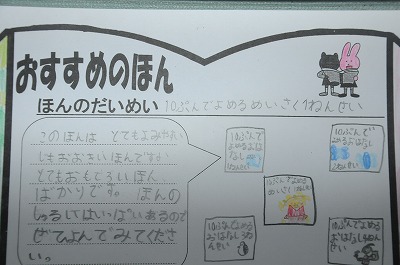 おすすめのほん
ほんのだいめい 10ぷんでよめるめいさく1ねんせい
このほんは とてもよみやすい
じもおおきいほんですい
とてもおもしろいほん
ばかりです。 ほんの
しゅるいはいっぱいあるので
ぜひよんでみてくださ
い。
10ぷんで
よめるおはなし
1ねんせい
10ぷんで
よめるおはなし
10ぷんでよめる
めいさく1ねんせい
10ぷんでよめる
おはなし1ねん
せい
10ぷんでよめる
おはなし1ねん
せい